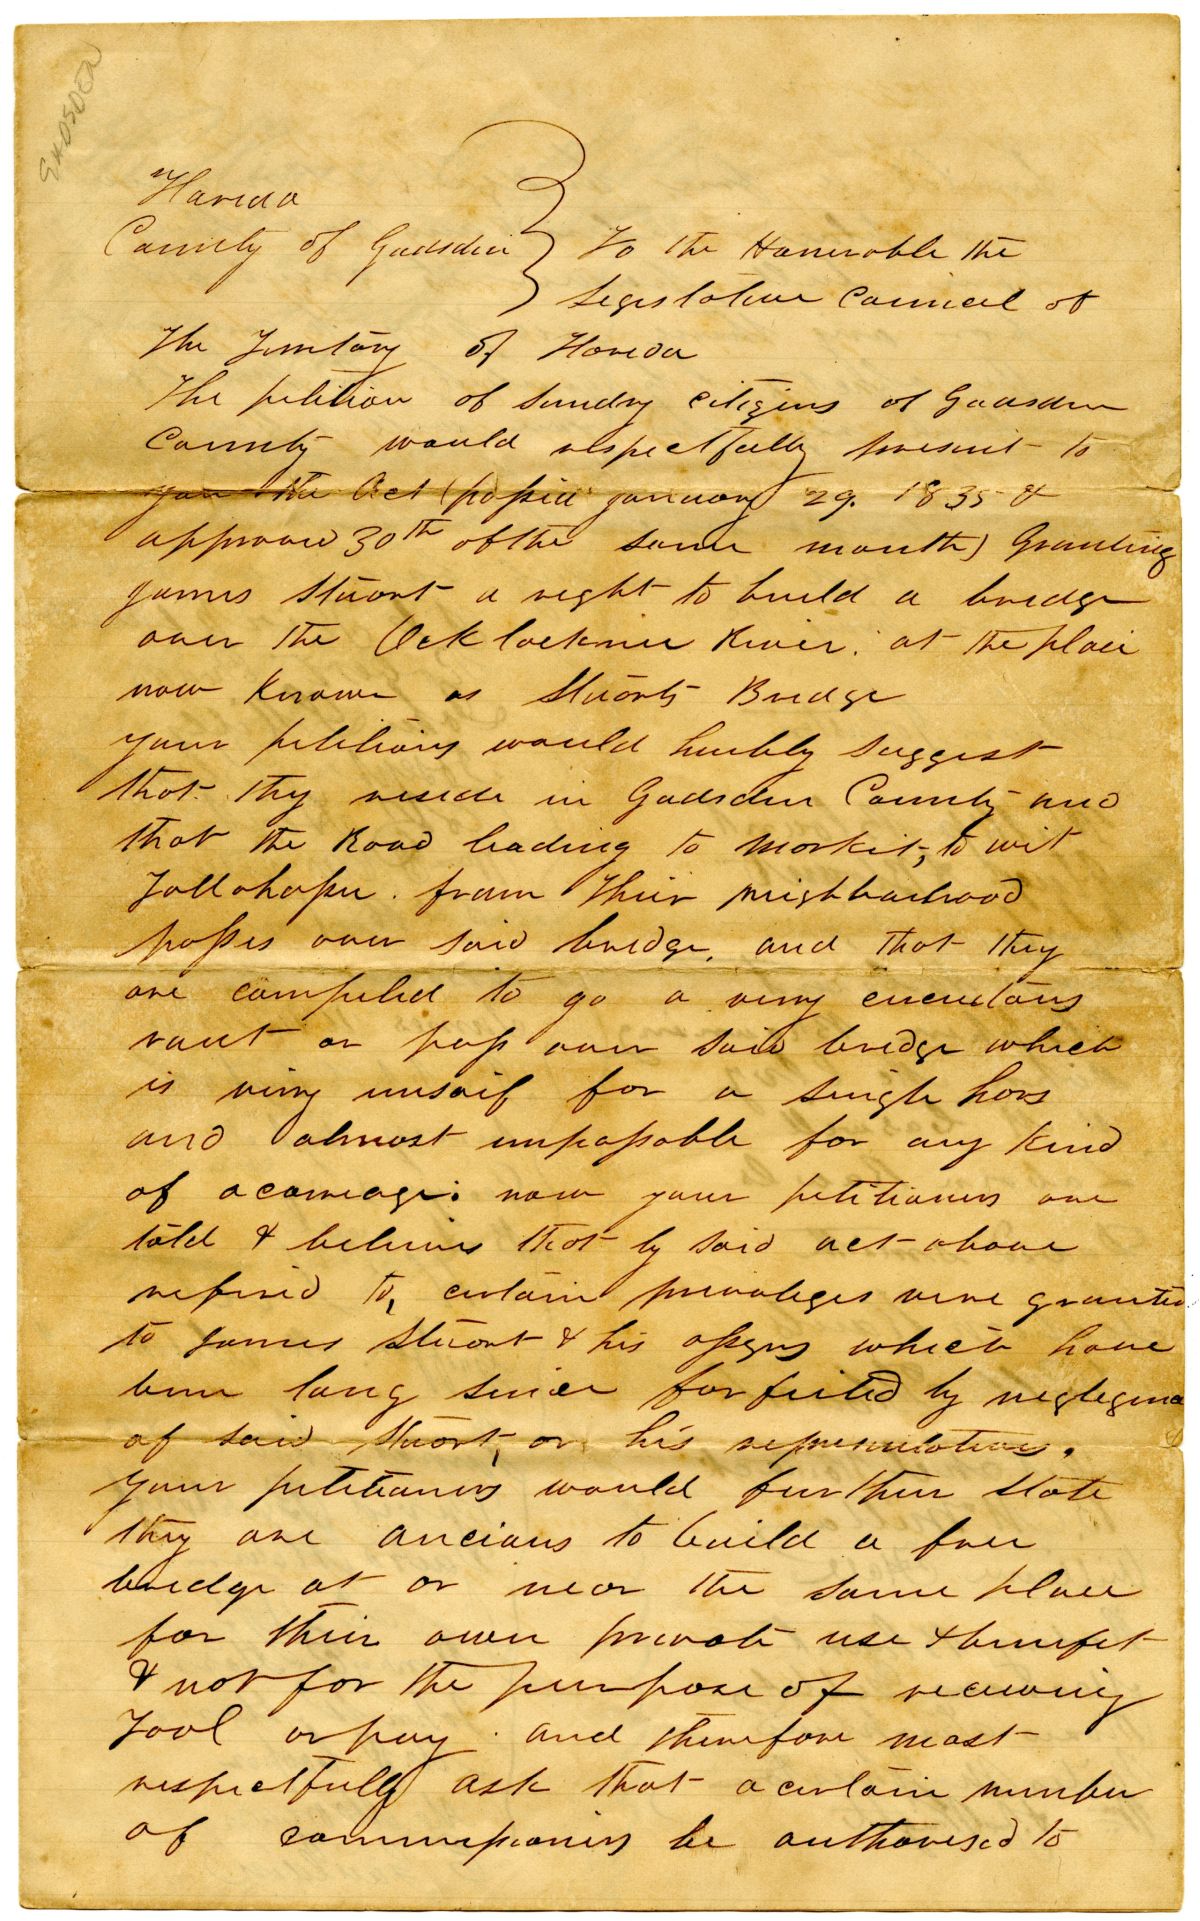 GADSDEN
Floreda
County of Gadsden } To the Honerable the
Legislative Council of
The Territory of Floreda
The petition of sundry citizins of Gadsden
County would respectfully present to
you the Act (passed january 29. 1835 &
approved 30th of the same month) Granting
james Stuart a right to build a bredge
over the Ocklocknee River. at the place
now known as Stuarts Bredge
your petitions would humbly suggest
that they reside in Gadsden County and
that the Road leading to market, to wit
Tallahassee. from their neighbourhood
passes over said bredge, and that they
are compeled to go a very circuitous
rout or pass over said bredge which
is very unsaif for a single hors
and almost impassable for any kind
of a carreage: now your petitioners are
told & believes that by said act above
refired to, certain previleges were granted
to james Stuart & his assigns which have
been long since forfeited by neglegence
of said Stuart, or his representatives.
your petitioners would further state
they are ancious to build a free
bredge at or near the same place
for their own private use & benefit
& not for the purpose of receiving
Tool or pay. and therefore most
respectfully ask that a certain number
of commissioners be authorised to